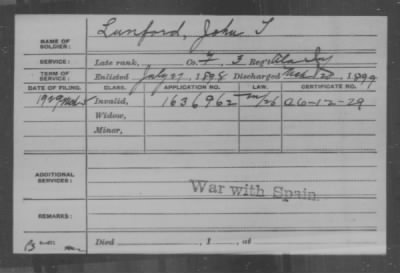 NAME OF SOLDIER: Lunford, John T
SERVICE: Late rank, Co. F, 3 Reg't Ala Inf
TERM OF SERVICE: Enlisted July 27, 1898 Discharged Mch 20, 1899
DATE OF FILING. CLASS. APPLICATION NO. LAW. CERTIFICATE NO.
1929 Mch Invalid, 1636962 A6-12-29
Widow,
Minor,
ADDITIONAL SERVICES:
War with Spain.
REMARKS:
Died , 1 , at